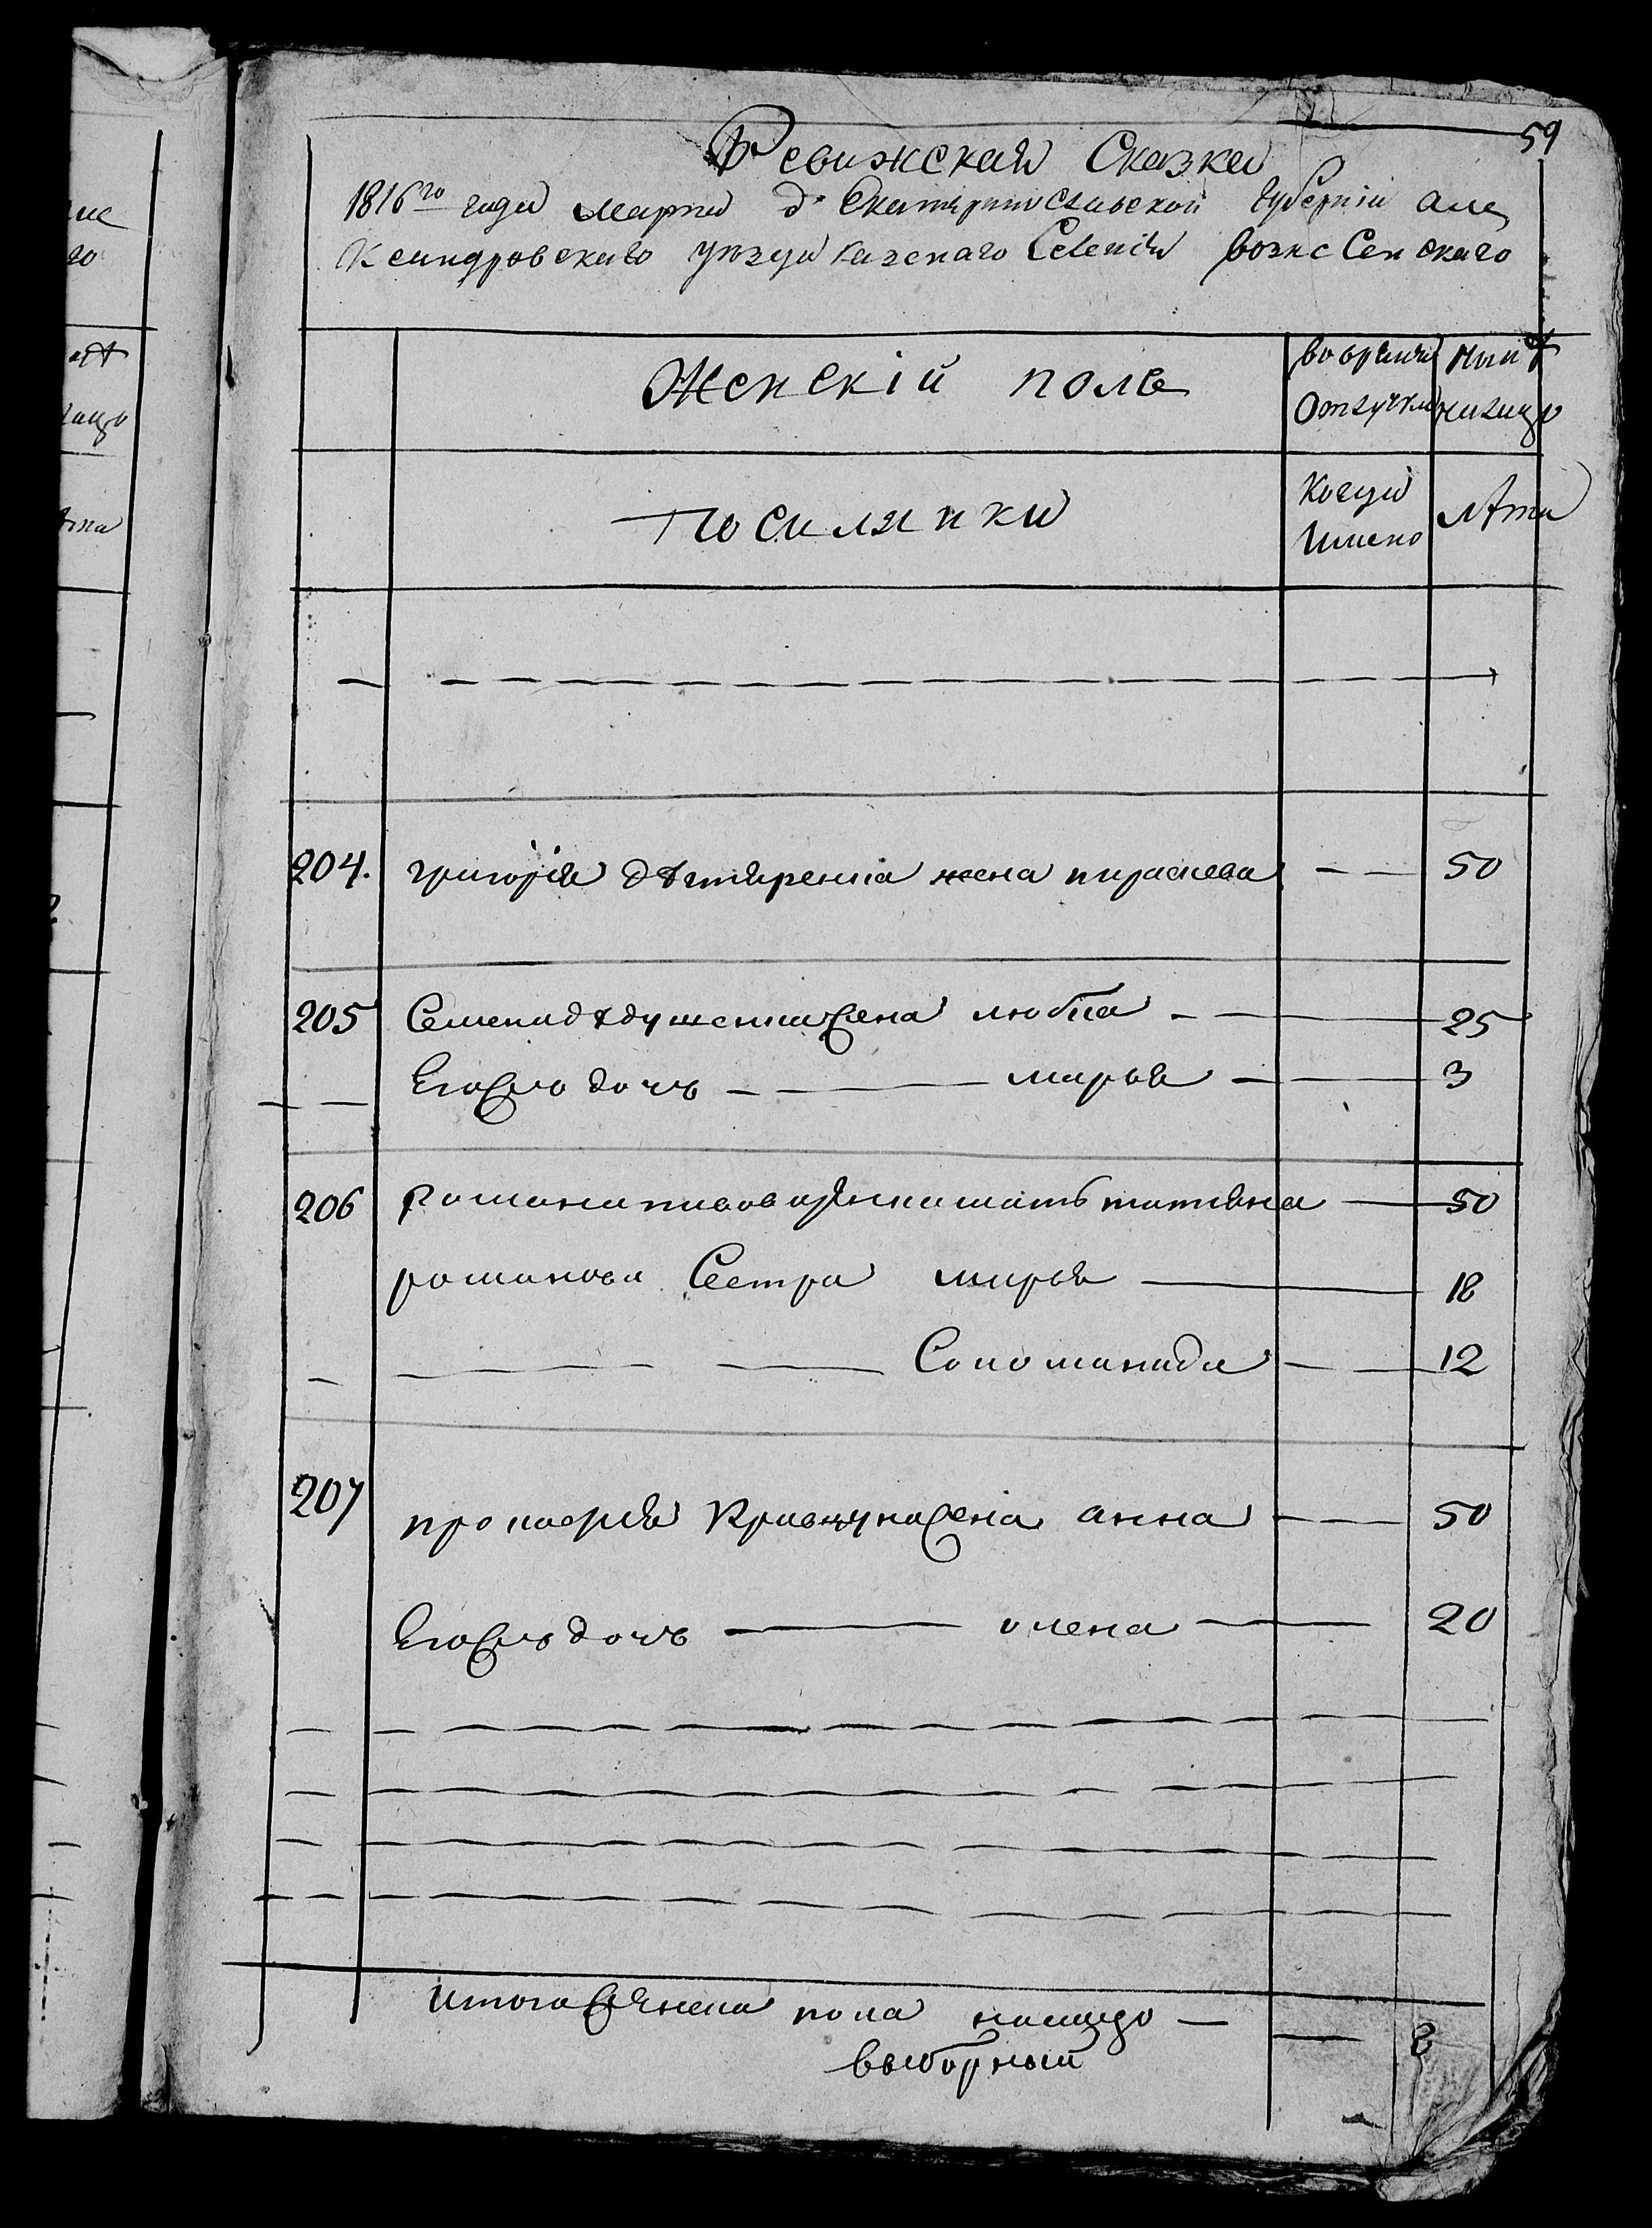 59
Ревижская Сказка
1816го года марта д Екатеринославской Губерніи Але
Ксандровскаго уезда Казенаго Селенія вознесенскаго
Женскій полъ
во время отлучки
нынѣ налицо
Поселянки
Когда имено
Лѣта
204. григорія жена параскева — — 50
205 Семена жена любка — — 25
Егожъ дочь — — марья — — 3
206 Романа пивоваренка мать татьяна — 50
романова Сестра марья — 18
— — — Соломанида — — 12
207 прокофія Кравчука жена анна — — 50
Егожъ дочь — олена — — 20
Итого женска пола налицо — — 8
выборный